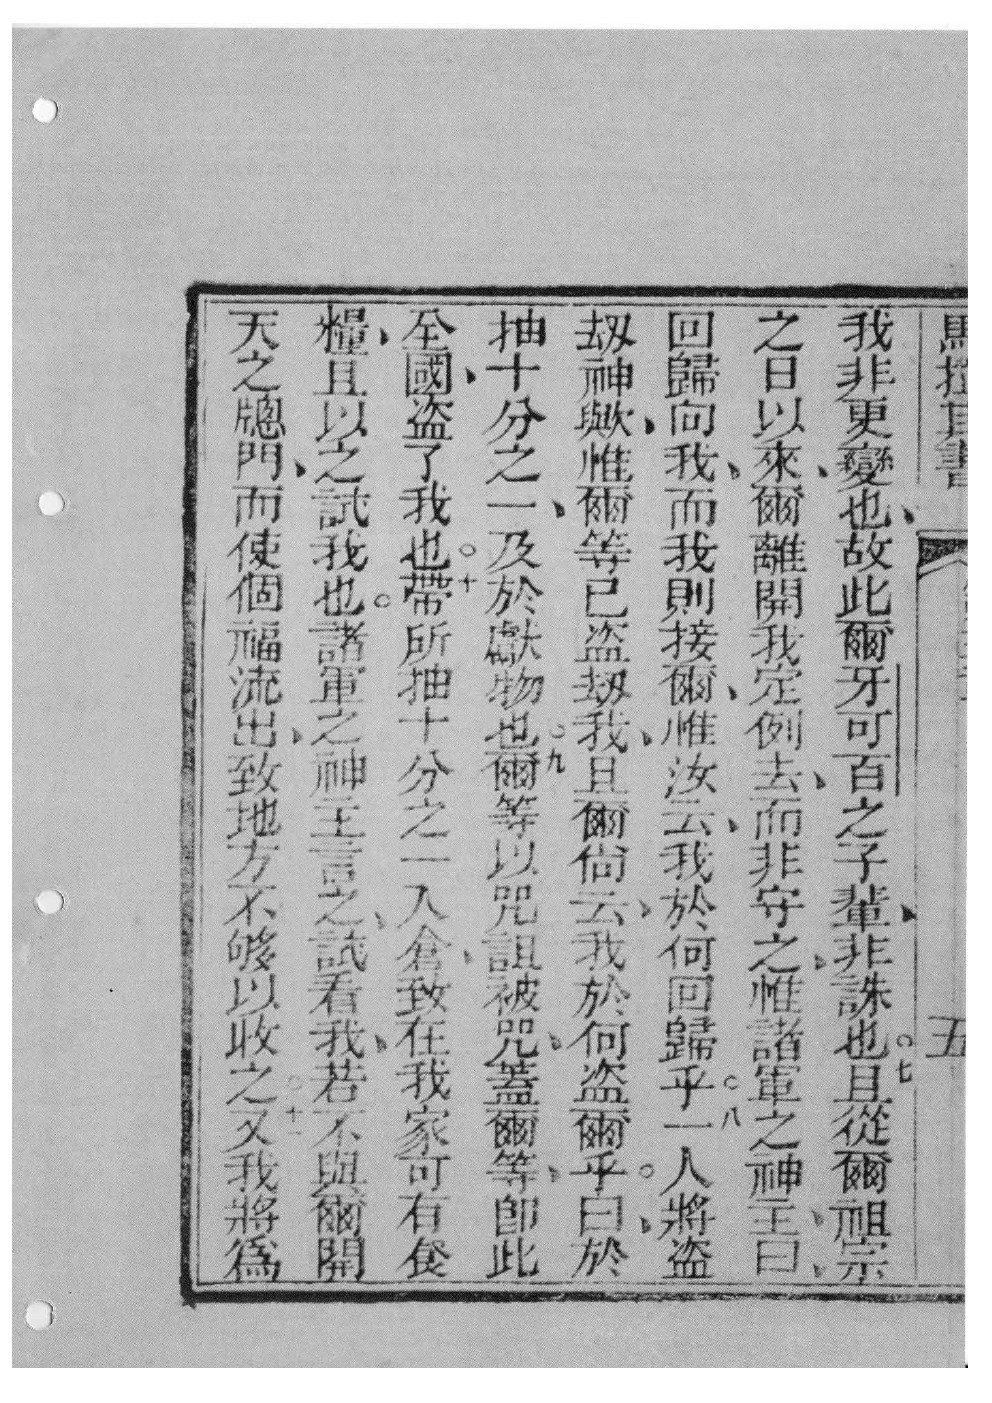 我非更變也、故此爾牙可百之子輩、非誅也。七且從爾祖宗
之日以來、爾離開我定例去、而非守之、惟諸軍之神王、曰、
回歸向我、而我則接爾、惟汝云、我於何回歸乎。八一人將盜
刼神歟、惟爾等已盜刼我、且爾尙云、我於何盜爾乎。曰、於
抽十分之一、及於獻物也。九爾等以咒詛被咒、蓋爾等、卽此
全國、盜了我也。十帶所抽十分之一入倉、致在我家可有食
糧、且以之試我也。諸軍之神王言之、試看我、若不與爾開
天之牕門、而使個福流出、致地方不够以收之。十一又我將爲
五